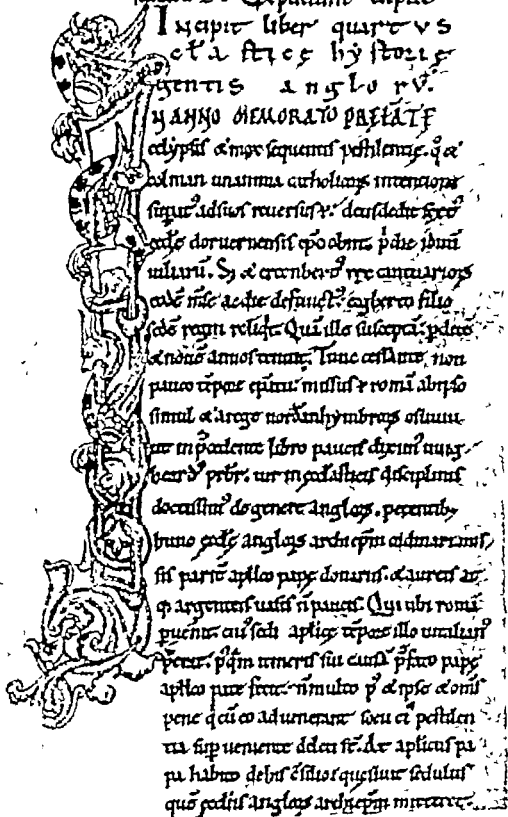 Incipit liber quartus
ecl̄astice hystorię
gentis anglorū.
IN ANNO MEMORATO PREFATE
eclypsis & mox sequentis pestilentię. q̊ &
colman unanima catholicoꝝ intentione
supat' ad suos reuersus ē. deusdedit sext'
eccłę doruernensis ep̄c obiit. p̄die iduū
iuliarū. S; & erconbert' rex cantuarioꝝ
eodē m̄se ac die defunct'. egberto filio
sedē regni reliq̄t. Quā ille susceptā. p dece
& nouē annos tenuit. Tunc cessante non
pauco tēpore ep̄atu. missus ē romā ab ipso
simul & a rege nordanhymbroꝝ osuuiu.
ut in p̄cedente libro paucis diximus uuig
heard' prb̄r. uir in eccl̄asticis disciplinis
doctissim' de genere angloꝝ. petentib;
hunc eccłę angloꝝ archiep̄m ordinari. mis
sis parit̄ apłico papę donariis. & aureis at
q; argenteis uasis n̄ paucis. Qui ubi romā
puenit. cui' sedi aplicę tēpore illo uitalian'
p̄erat. p'q̄m itineris sui causā p̄fato papę
apłico pate fecit. n̄ multo p' & ipse & om̄s
pene q̇ cū eo aduenerant socii ei' pestilen
tia supueniente deleti st̄. At aplicus pa
pa habito de his c̄silio. quesiuit sedulus
quē eccłiis angloꝝ archiep̄m mitteret.